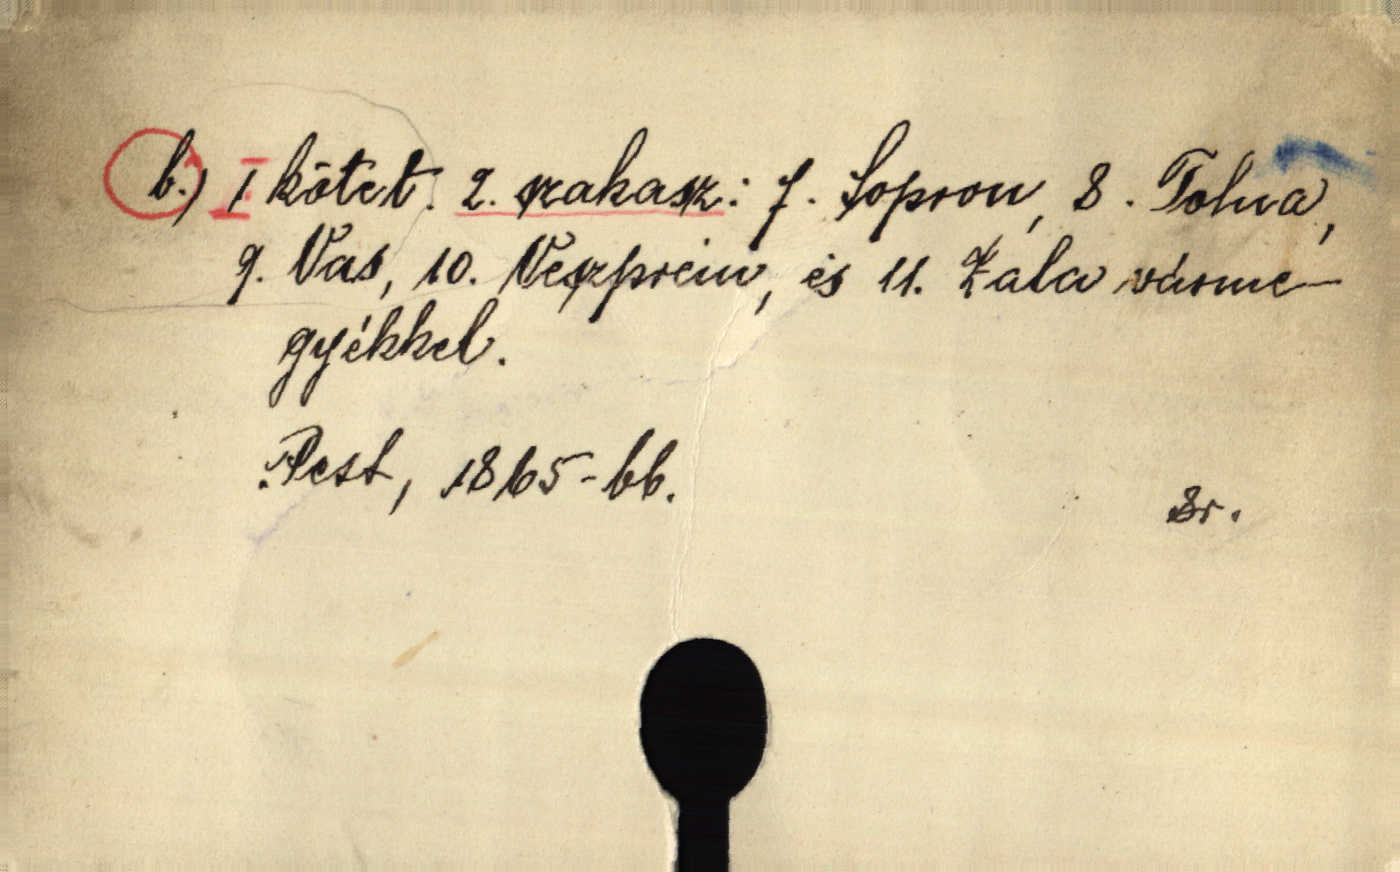 b.) I kötet. 2. szakasz: 7. Sopron, 8. Tolna,
9. Vas, 10. Veszprém, és 11. Zala várme-
gyékkel.
Pest, 1865-66.
8r.